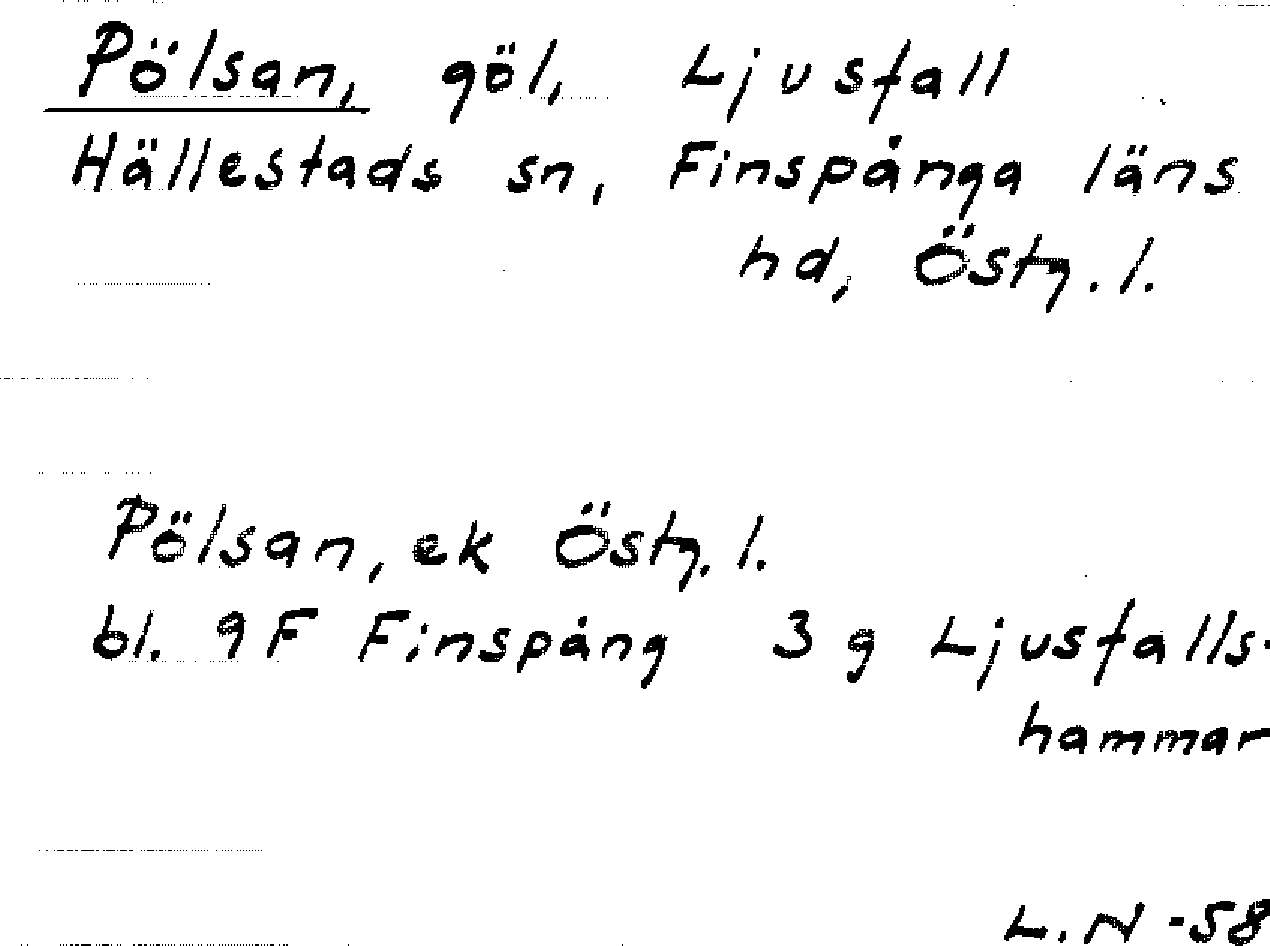 Pölsan, göl, Ljusfall
Hällestads sn, Finspånga läns
hd, Östg.l.
Pölsan, ek Östg.l.
bl. 9F Finspång 3g Ljusfalls-
hammar
L.N -58